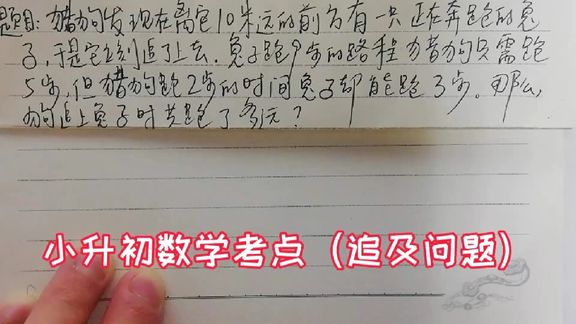 题目:猎狗发现在离它10米远的前方有一只正在奔跑的兔
子,于是它立刻追了上去。兔子跑9步的路程猎狗只需跑
5步,但猎狗跑2步的时间兔子却能跑3步。那么,
狗追上兔子时共跑了多远?
小升初数学考点(追及问题)